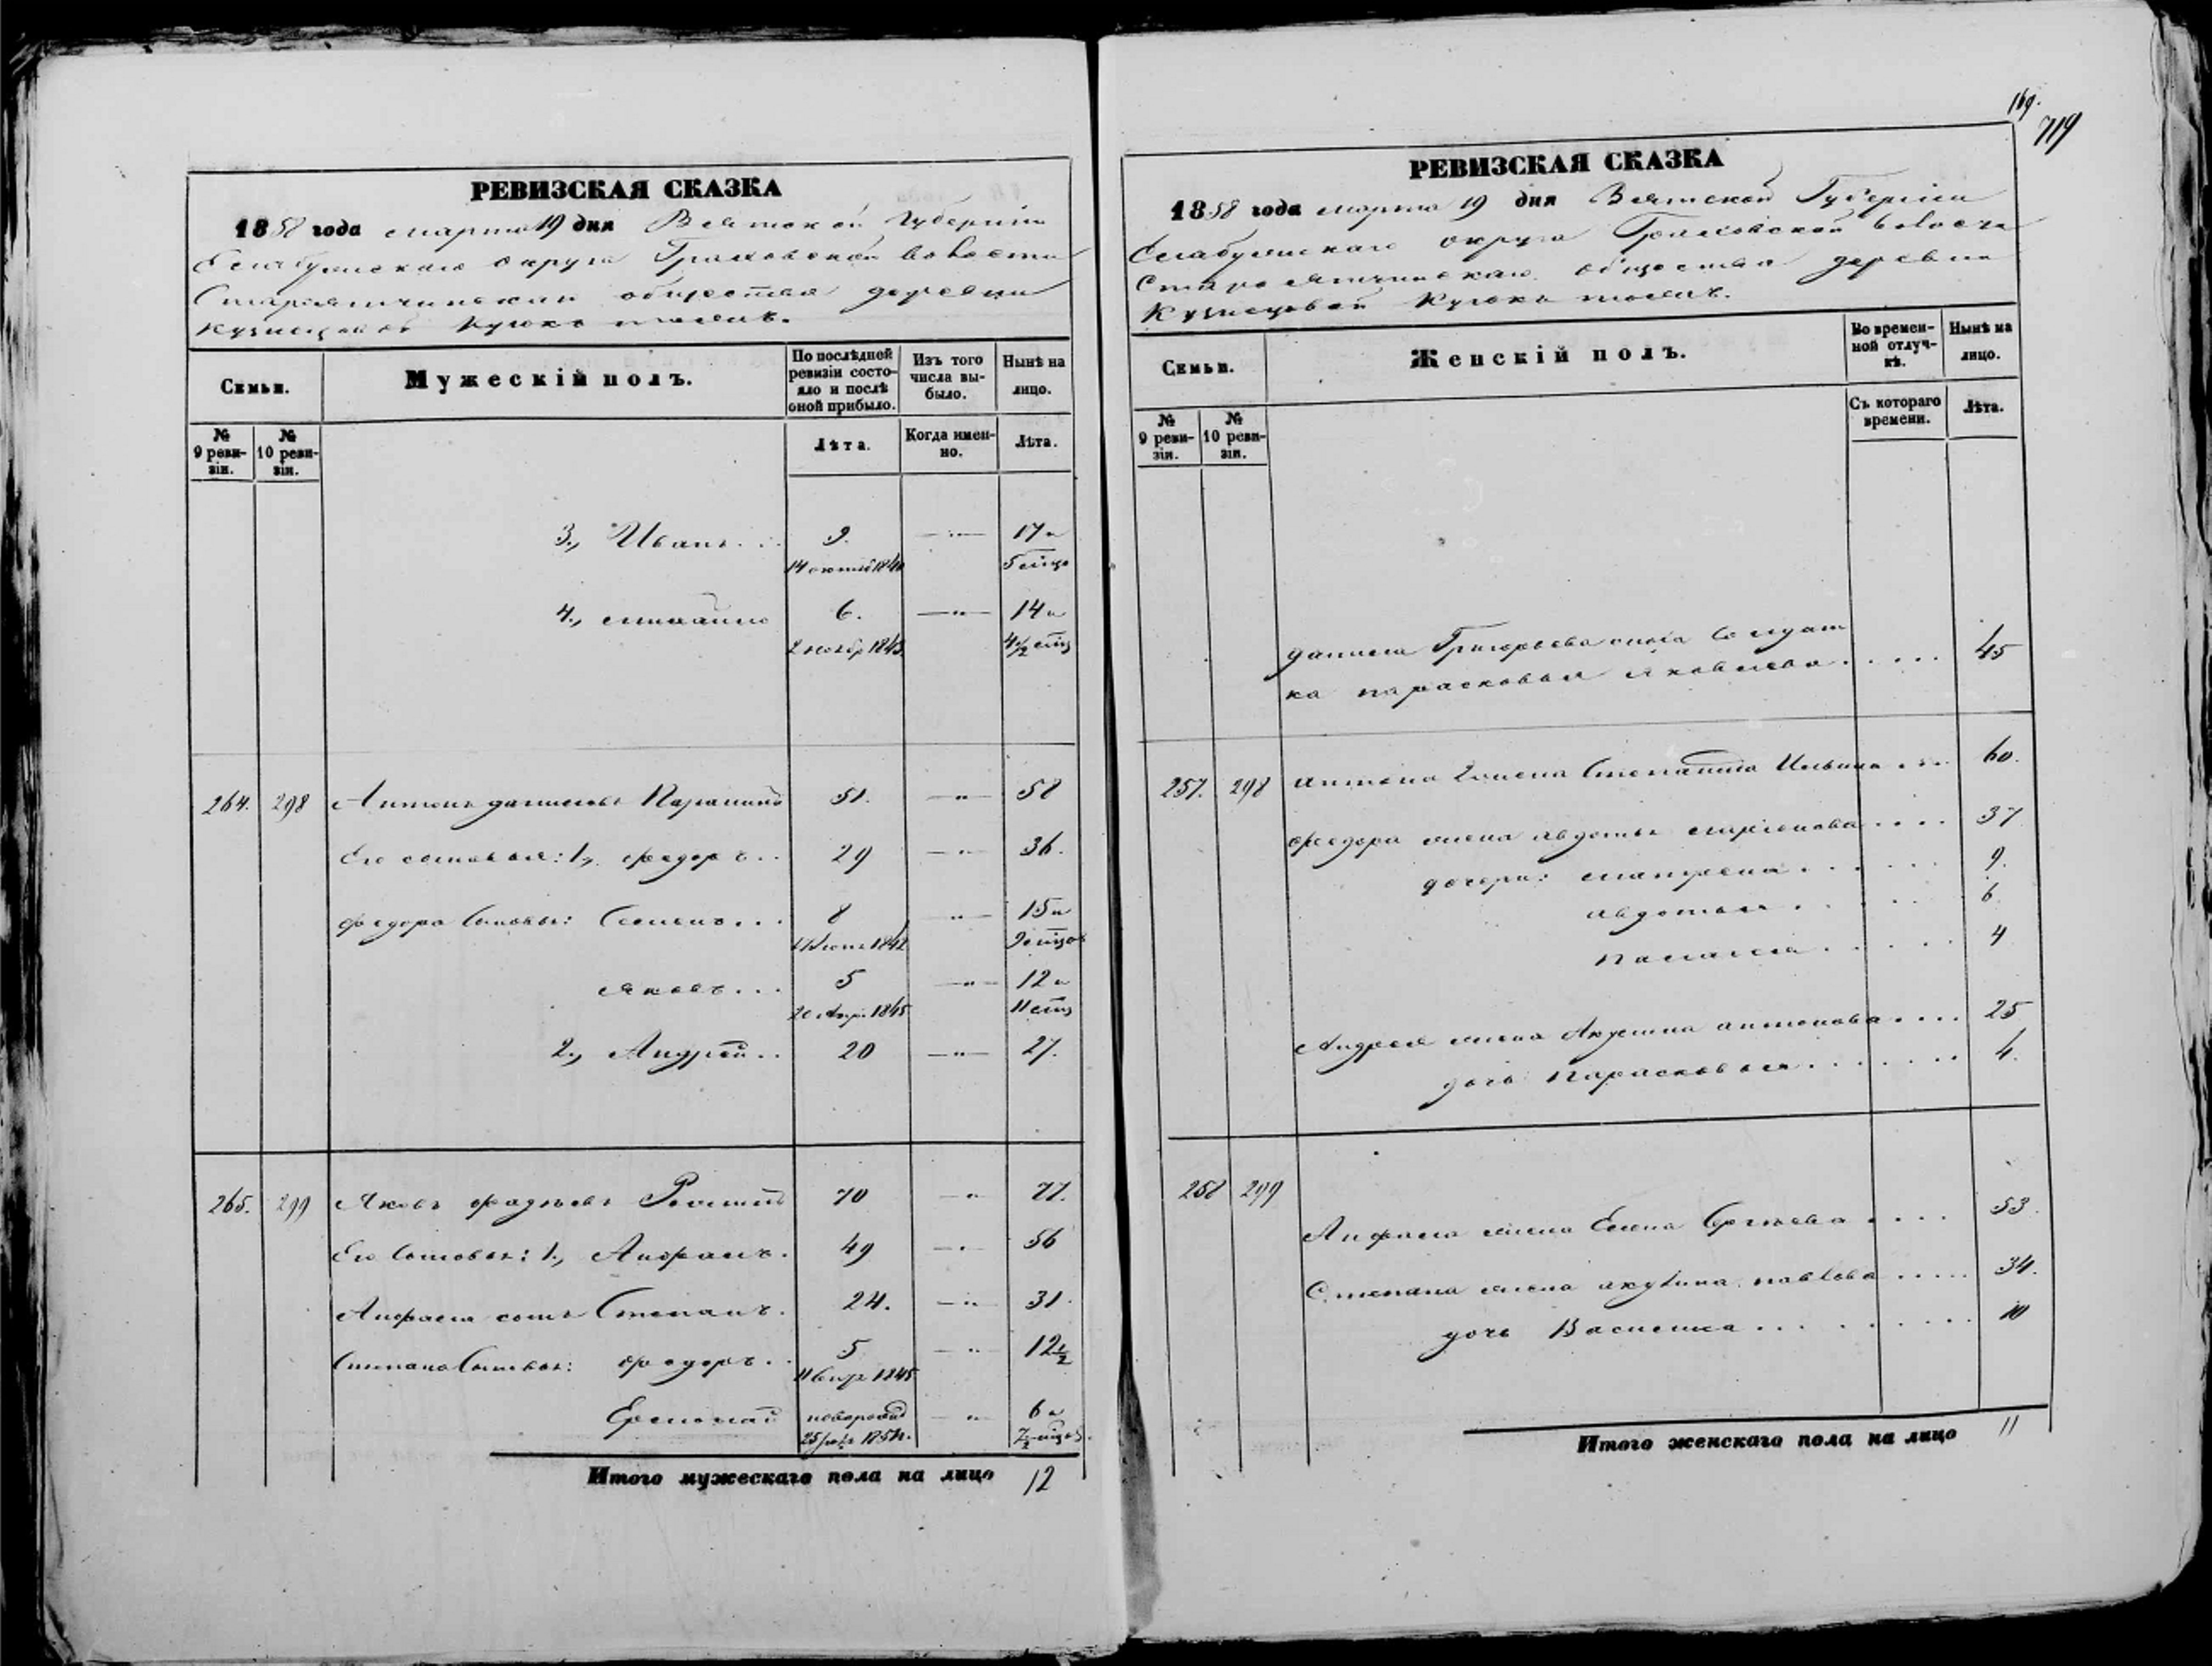 РЕВИЗСКАЯ СКАЗКА
1858 года марта 19 дня Вятской Губернiи
Елабужскаго округа Граховской волости
общества деревни
Кузнецовой
Семьи.
Мужескiй полъ.
По послѣдней ревизiи состояло и послѣ оной прибыло.
Изъ того числа выбыло.
Нынѣ на лицо.
№ 9 ревизiи.
№ 10 ревизiи.
Лѣта.
Когда именно.
Лѣта.
3., Иванъ... 9. 17 и
14 октяб 1840 5 мѣцо
4., михайло 6. 14 и
2 ноябр 1843. 4 1/2 мѣц
264. 298 Антонъ даниловъ 51. 58
Его сыновья: 1., федоръ.. 29 36.
федора сыновья: Семенъ... 8 15 и
1842 9 мѣцов
яковъ... 5 12 и
20 Апр. 1845 11 мѣц
2., Андрей.. 20 27.
265. 299 Яковъ 70 77.
Его сыновья: 1., Анфрасъ. 49 56
сынъ Степанъ. 24. 31.
Степана сыновья: федоръ.. 5 12 1/2
1845
Ермолай 6 и
новорожд 25 185
Итого мужескаго пола на лицо 12
169.
719
РЕВИЗСКАЯ СКАЗКА
1858 года марта 19 дня Вятской Губернiи
Елабужскаго округа Граховской волости
общества деревни
Кузнецовой
Семьи.
Женскiй полъ.
Во временной отлучкѣ.
Нынѣ на лицо.
№ 9 ревизiи.
№ 10 ревизiи.
Съ котораго времени.
Лѣта.
данила Григорьева сноха солдат
ка парасковья яковлева..... 45
257. 298 антона жена Степанида Ильина.... 60.
федора жена авдотья.... 37
дочери: матрена...... 9.
авдотья..... 6.
пелагея..... 4
Андрея жена Акулина антонова.... 25
дочь Парасковья....... 4.
258 299
жена Елена Сергѣева.... 53.
Степана жена акулина павлова..... 34.
дочь Василиса.......... 10
Итого женскаго пола на лицо 11